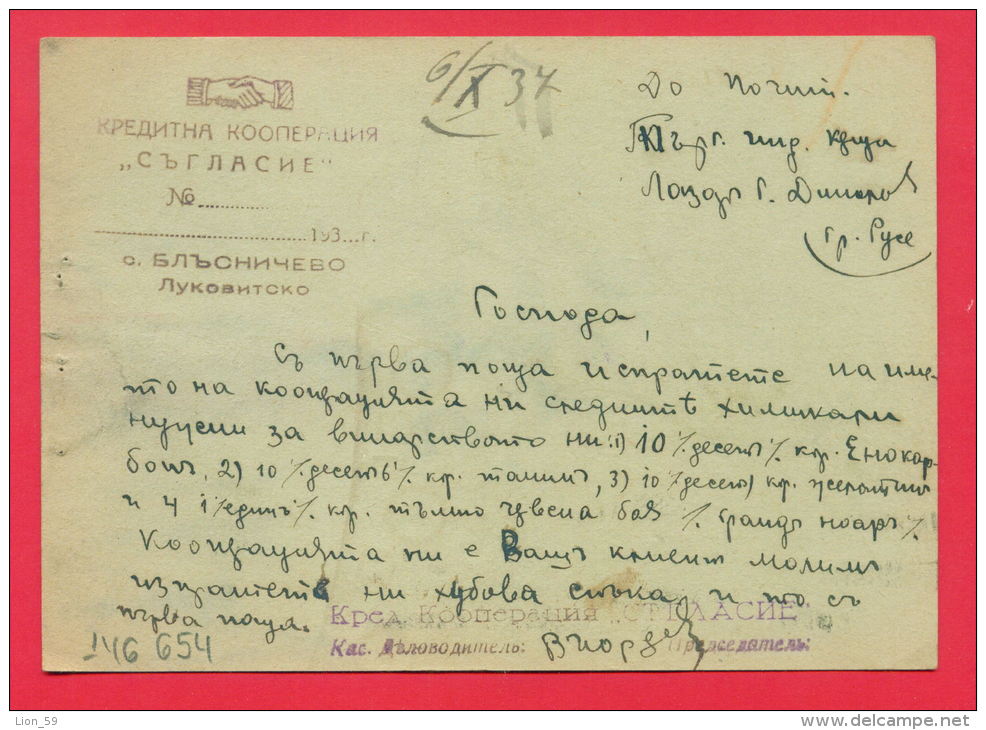 6/X 37
КРЕДИТНА КООПЕРАЦИЯ
„СЪГЛАСИЕ"
№..........
193...г.
с. БЛЪСНИЧЕВО
Луковитско
До Почит.
Търг. инд. къща
Лазаръ Г. Димировъ
гр. Русе
Господа,
Съ първа поща испратете на име-
то на кооперацията ни следнитѣ химикали
нуусни за винарството ни: 1) 10 /.десеть/. кгр. Енокар-
бонъ, 2) 10 /.десеть/. кгр. танинъ, 3) 10 /десеть/ кгр. желатинъ
и 4 1 /.единъ/. кгр. тъмно червена боя /. грандъ ноаръ /.
Кооперацията ни е Вашъ клиент молимъ
изпратете ни хубова стока и то съ
първа поща.
Кред. Кооперация „СЪГЛАСИЕ"
Кас. Дѣловодитель:
Председатель:
146 654
Lion_59
www.delcampe.net